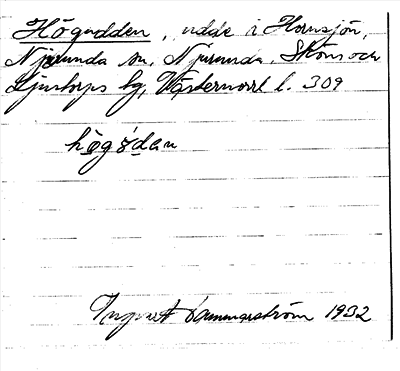 Högudden, udde i Hornsjön,
Njurunda sn, Njurunda, Sköns och
Ljustorps tg, Västernorrl l. 309
högødan
Hammarström 1932